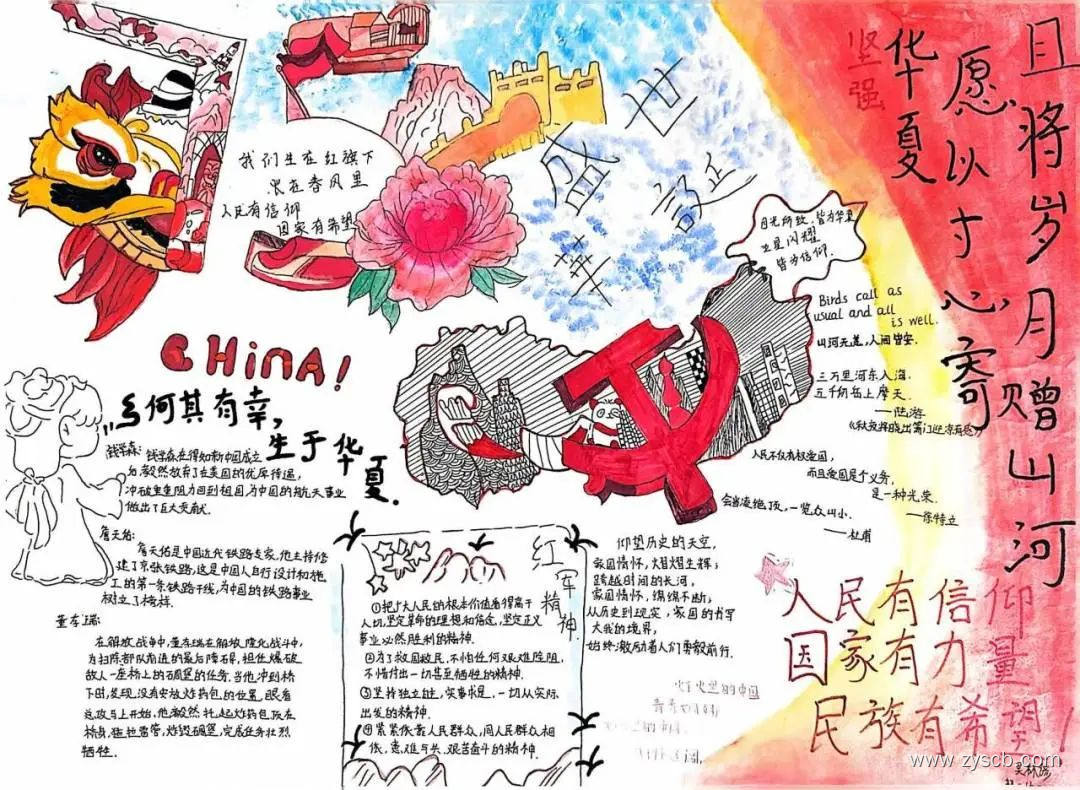 我们生在红旗下
长在春风里
人民有信仰
国家有希望
盛世华诞
坚强
华夏
且将岁月赠山河
愿以寸心寄
目光所致,皆为华夏
五星闪耀
皆为信仰.
Birds call as
usual and all
is well.
山河无恙,人间皆安.
三万里河东入海,
五千仞岳上摩天.
——陆游
《秋夜将晓出篱门迎凉有感》
人民不仅有权爱国,
而且爱国是个义务,
是一种光荣.
——徐特立
会当凌绝顶,一览众山小.
——杜甫
CHINA!
何其有幸,
生于华夏.
钱学森: 钱学森在得知新中国成立
后,毅然放弃了在美国的优厚待遇,
冲破重重阻力回到祖国,为中国的航天事业
做出了巨大贡献.
詹天佑:
詹天佑是中国近代铁路专家.他主持修
建了京张铁路,这是中国人自行设计和施
工的第一条铁路干线,为中国的铁路事业
树立了榜样.
董存瑞:
在解放战争中,董存瑞在解放隆化战斗中,
为扫除部队前进的最后障碍,担任爆破
敌人一座桥上的碉堡的任务.当他冲到桥
下时,发现没有安放炸药包的位置,眼看
总攻马上开始,他毅然托起炸药包顶在
桥身,拉响雷管,炸毁碉堡,完成任务壮烈
牺牲.
红军精神
①把广大人民的根本价值看得高于
一切,坚定革命的理想和信念,坚定正义
事业必然胜利的精神.
②为了救国救民,不怕任何艰难险阻,
不惜付出一切甚至牺牲的精神.
③坚持独立自主,实事求是,一切从实际
出发的精神.
④紧紧依靠人民群众,同人民群众相
依,患难与共,艰苦奋斗的精神.
仰望历史的天空,
家国情怀,熠熠生辉;
跨越时间的长河,
家国情怀,绵绵不断;
从历史到现实,家国的书写
大我的境界,
始终激励着人们勇毅前行.
的中国
人民有信仰
国家有力量
民族有希望!
www.zyscb.com